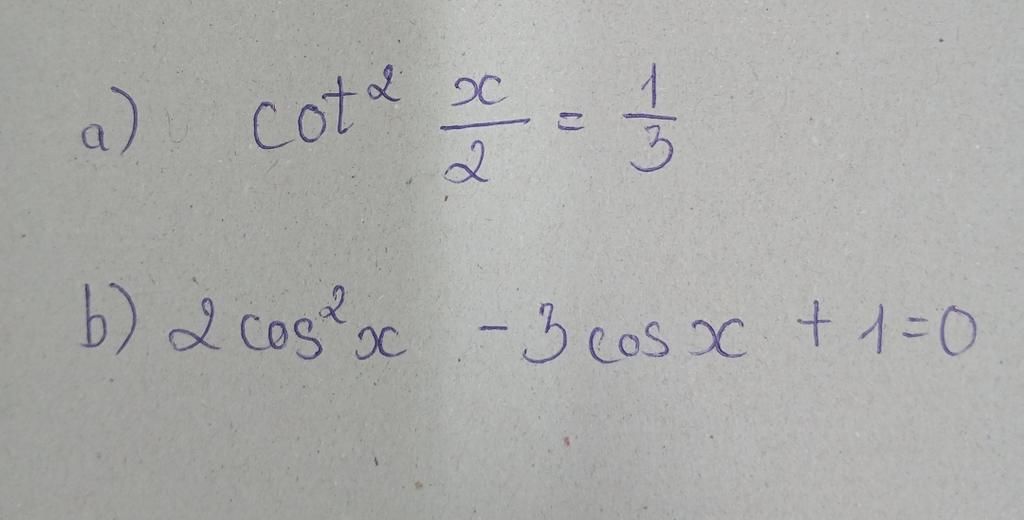 a) cot² x/2 = 1/3
b) 2 cos²x - 3 cos x + 1 = 0